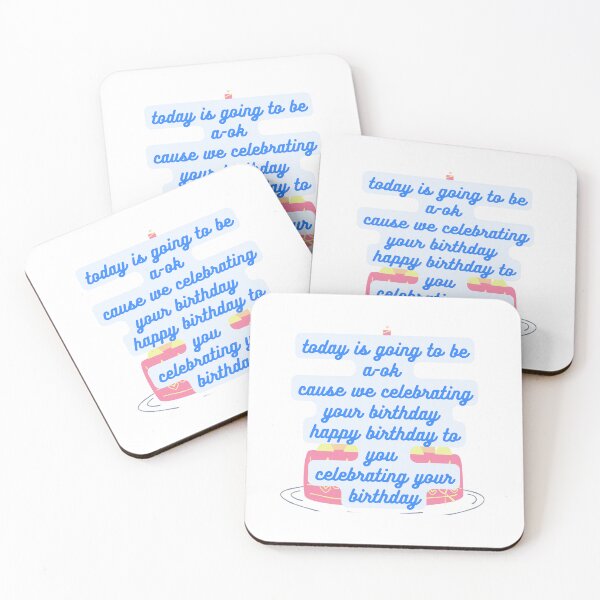 today is going to be
a-ok
cause we celebrating
your birthday
to
your
today is going to be
a-ok
cause we celebrating
your birthday
happy birthday to
you
today is going to be
a-ok
cause we celebrating
your birthday
happy birthday to
you
celebrating
today is going to be
a-ok
cause we celebrating
your birthday
happy birthday to
you
celebrating your
birthday